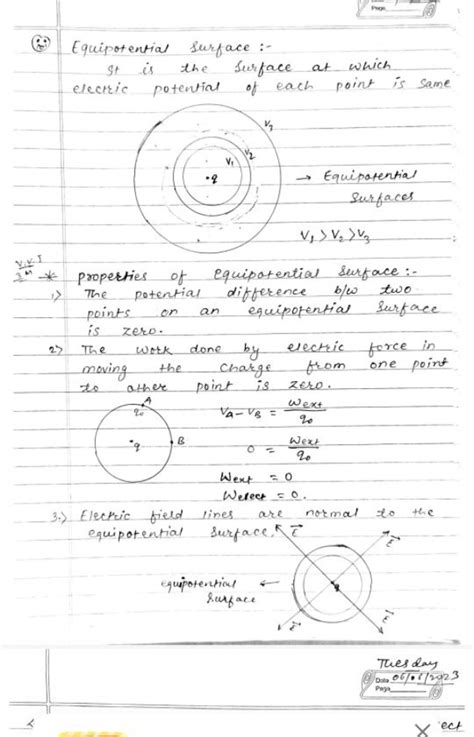 Page
Equipotential Surface :-
It is the Surface at which
electric potential of each point is same
V3
V2
V1
q
→ Equipotential
Surfaces
V1 > V2 > V3
V.V.I
3M
* properties of equipotential surface :-
1> The potential difference b/w two
points on an equipotential surface
is zero.
2> The work done by electric force in
moving the charge from one point
to other point is zero.
A
q0
VA - VB = Wext / q0
q
B
0 = Wext / q0
Wext = 0
Welect = 0.
3.> Electric field lines are normal to the
equipotential surface.
E
E
equipotential ←
surface
q
E
E
Tuesday
Date 06/06/2023
Page
ect